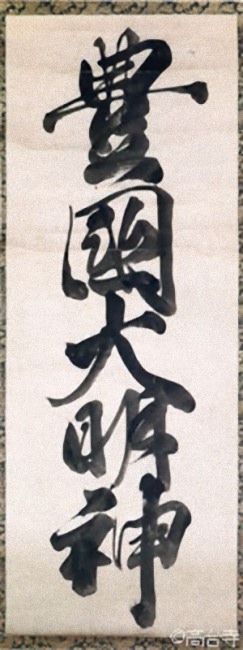 豊國大明神
©高台寺